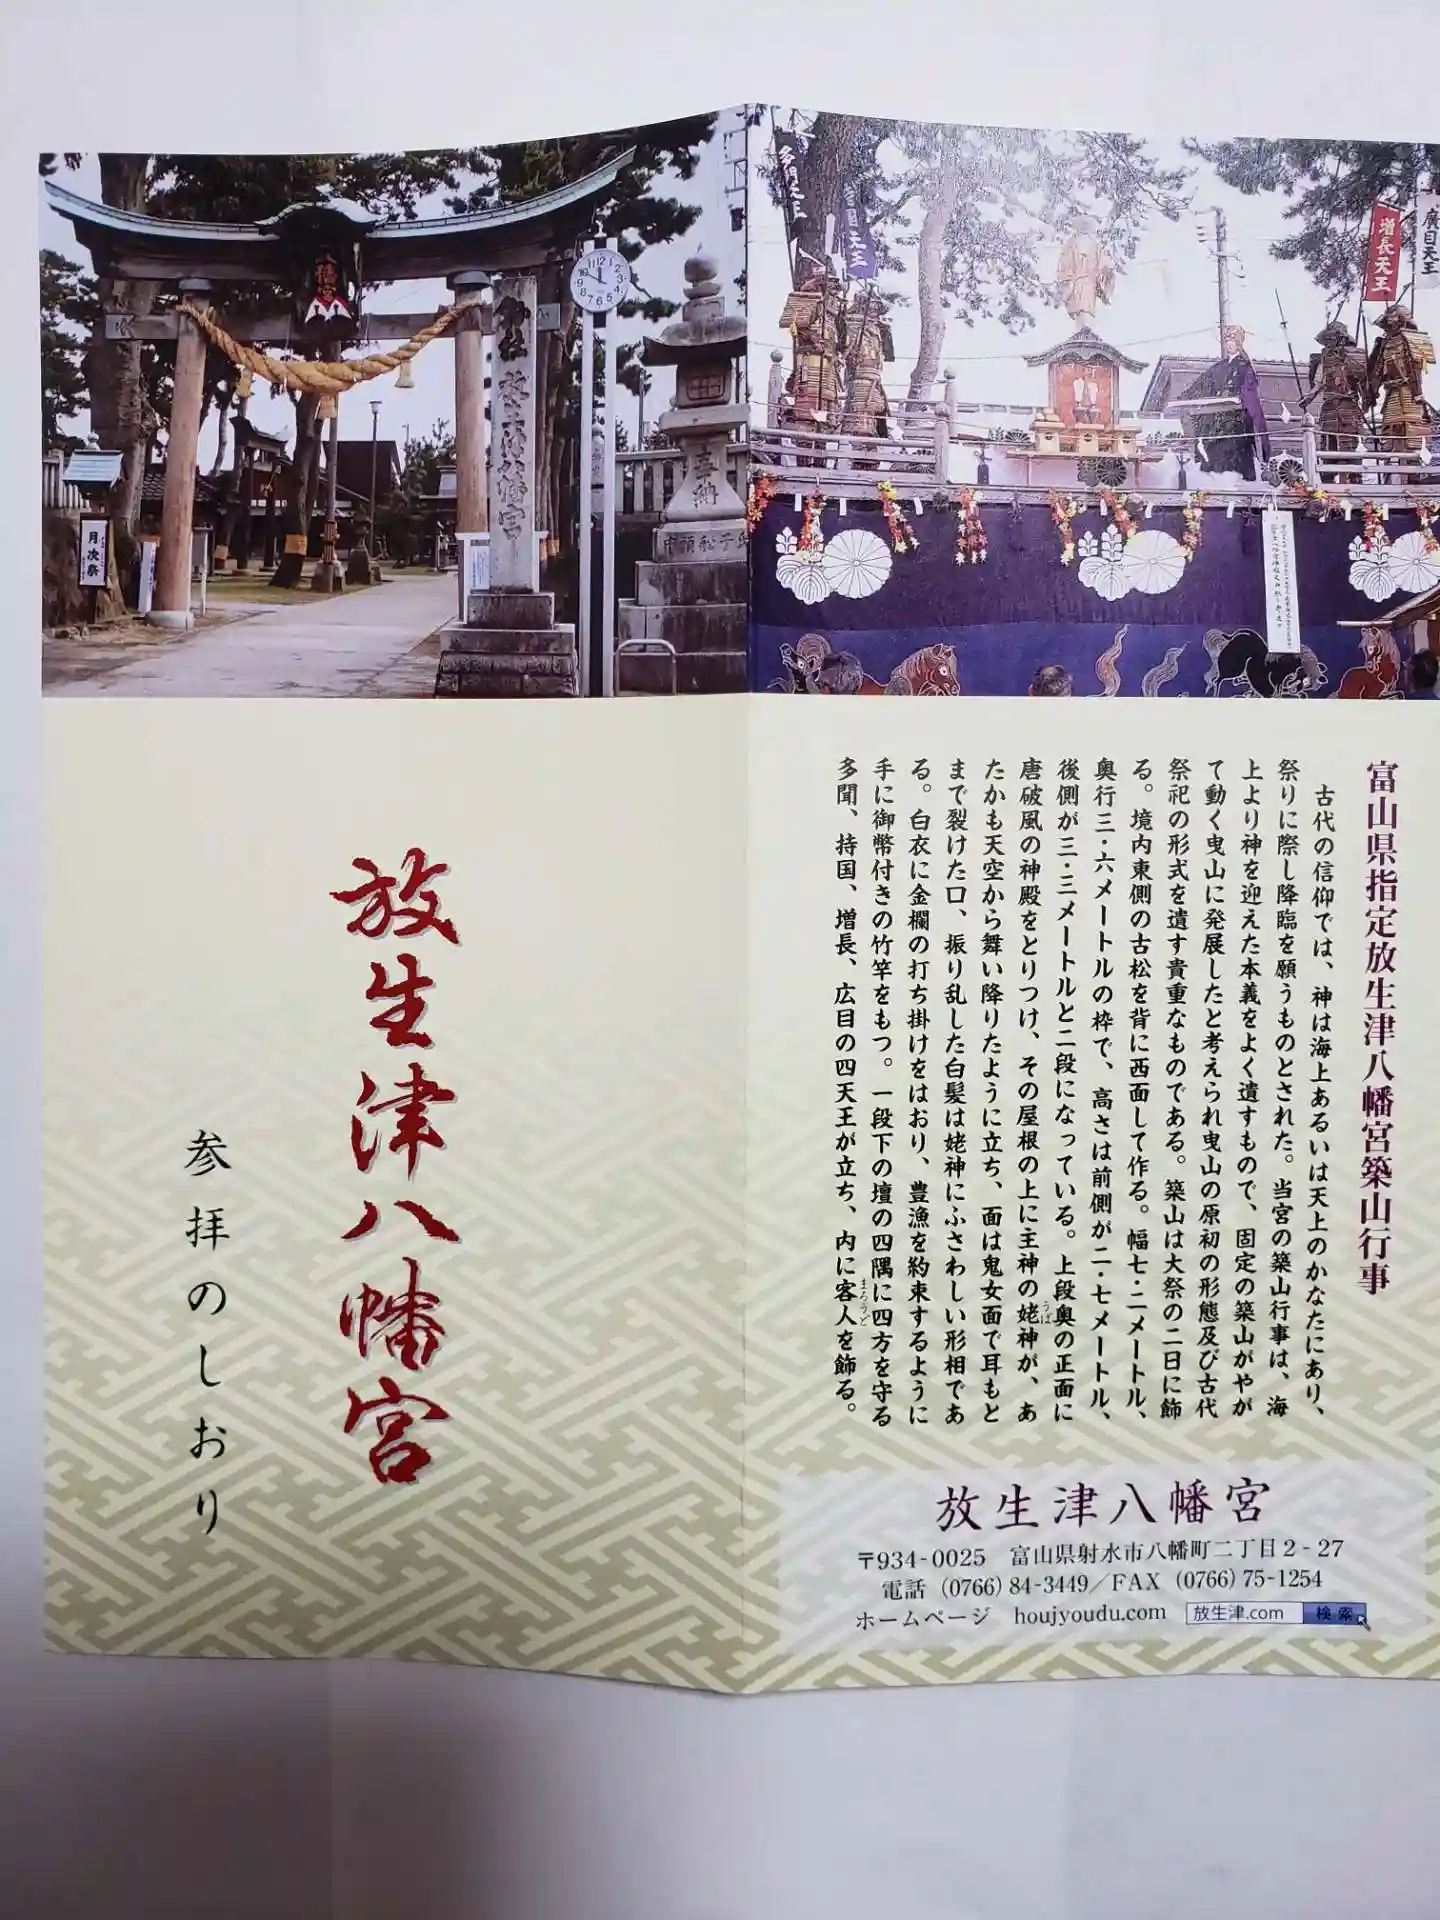 富山県指定放生津八幡宮築山行事
古代の信仰では、神は海上あるいは天上のかなたにあり、
祭りに際し降臨を願うものとされた。当宮の築山行事は、海
上より神を迎えた本義をよく遺すもので、固定の築山がやが
て動く曳山に発展したと考えられ曳山の原初の形態及び古代
祭祀の形式を遺す貴重なものである。築山は大祭の二日に飾
る。境内東側の古松を背に西面して作る。幅七・二メートル、
奥行三・六メートルの枠で、高さは前側が二・七メートル、
後側が三・三メートルと二段になっている。上段奥の正面に
唐破風の神殿をとりつけ、その屋根の上に主神の姥神が、あ
うば
たかも天空から舞い降りたように立ち、面は鬼女面で耳もと
まで裂けた口、振り乱した白髪は姥神にふさわしい形相であ
る。白衣に金欄の打ち掛けをはおり、豊漁を約束するように
手に御幣付きの竹竿をもつ。一段下の壇の四隅に四方を守る
多聞、持国、増長、広目の四天王が立ち、内に客人を飾る。
まろうど
放生津八幡宮
〒934-0025 富山県射水市八幡町二丁目2-27
電話 (0766) 84-3449／FAX (0766) 75-1254
ホームページ houjyoudu.com 放生津.com 検索
放生津八幡宮
参拝のしおり
八幡宮
放生津八幡宮
奉納
月次祭
多聞天王
増長天王
廣目天王